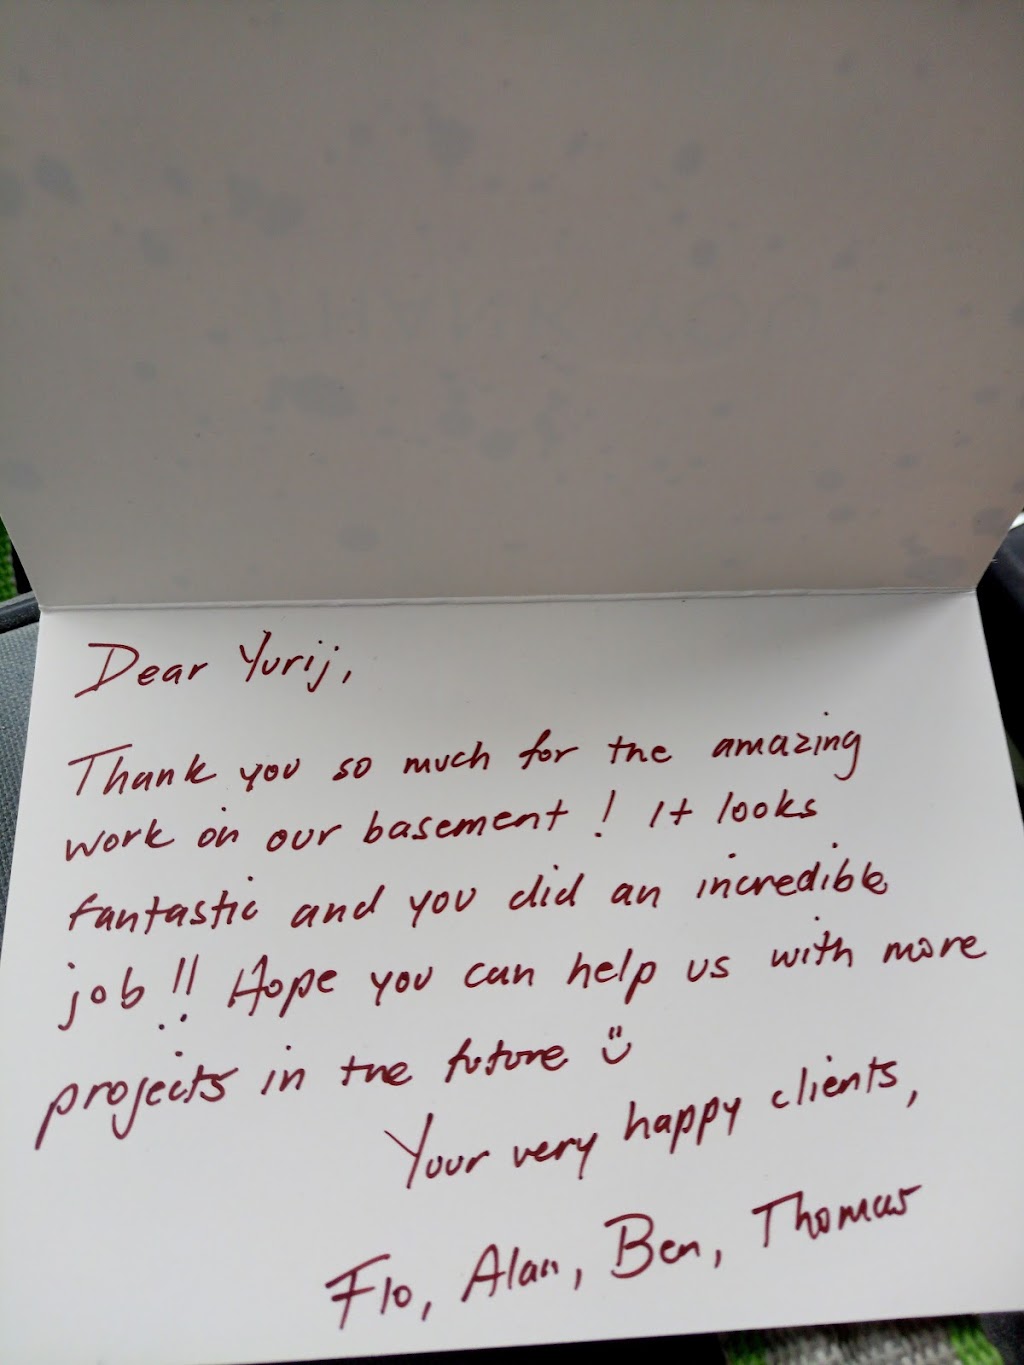 Dear Yurij,
Thank you so much for the amazing
work on our basement! It looks
fantastic and you did an incredible
job!! Hope you can help us with more
projects in the future
Your very happy clients,
Flo, Alan, Ben, Thomas
THANK YOU